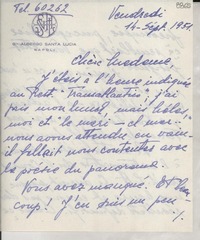 Tel. 60262
Vendredi
14 Sept. 1951.
ALBERGO SANTA LUCIA
NAPOLI
Chère madame,
J'étais à l'heure indiquée
au Rest. "Transatlantico", j'ai
pris mon lunch, mais hélas,
moi et "le mari – el mar..."
nous avons attendu en vain –
il fallait nous contenter avec
la poésie du panorama.
Vous avez manqué. Et beau-
coup! J'en suis un peu
./.